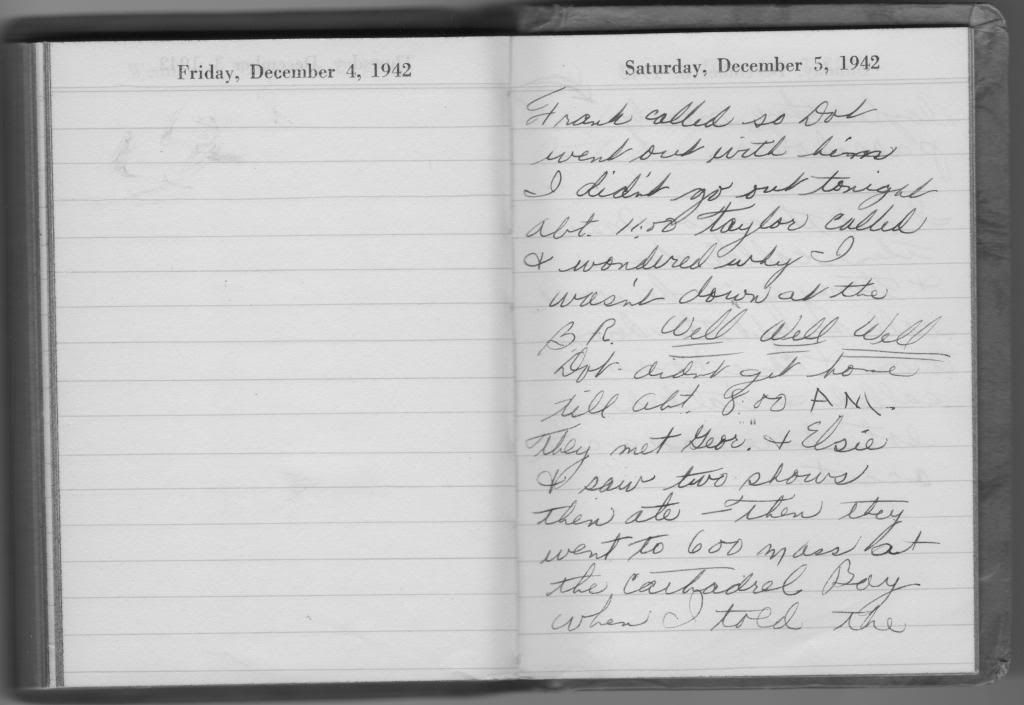 Friday, December 4, 1942
Saturday, December 5, 1942
Frank called so Dot
went out with him
I didn't go out tonight
abt. 11:00 taylor called
& wondered why I
wasn't down at the
B.R. Well Well Well
Dot didn't get home
till abt. 8:00 A M.
They met Geor. & Elsie
& saw two shows
then ate - then they
went to 600 mass at
the cathadrel Boy
when I told the